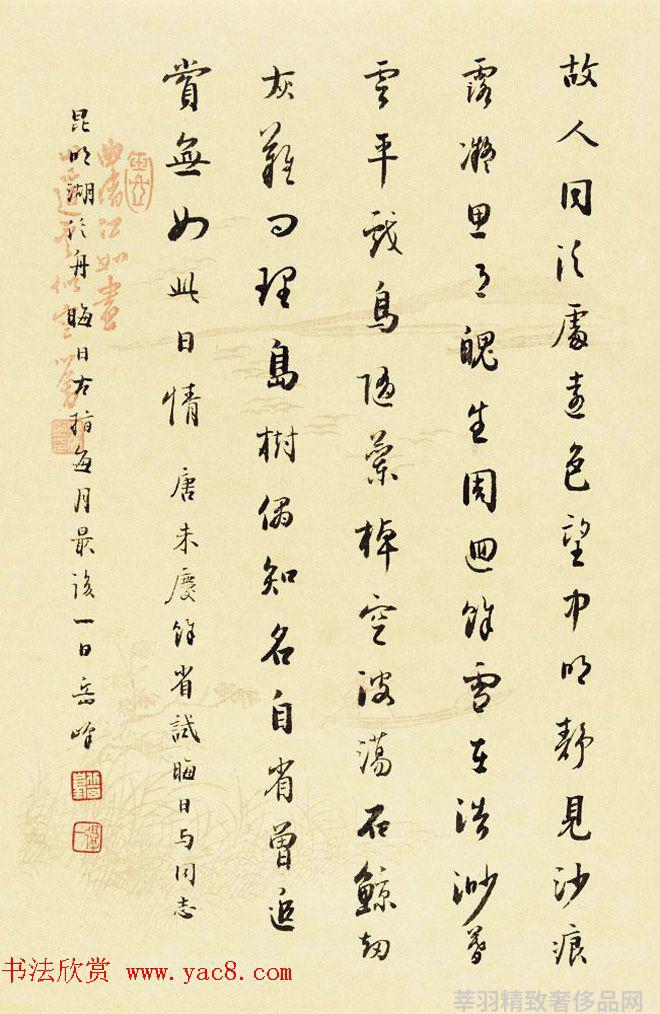 故人同泛處遠色望中明靜見沙痕
露凝思月魄生周迴餘雪在浩渺暮
雲平戲鳥隨蘭棹空波蕩石鯨劫
灰難問理島樹偶知名自省曾追
賞無如此日情 唐朱慶餘省試晦日与同志
昆明湖泛舟 晦日古指每月最後一日 岳峰
书法欣赏 www.yac8.com
莘羽精致奢侈品网